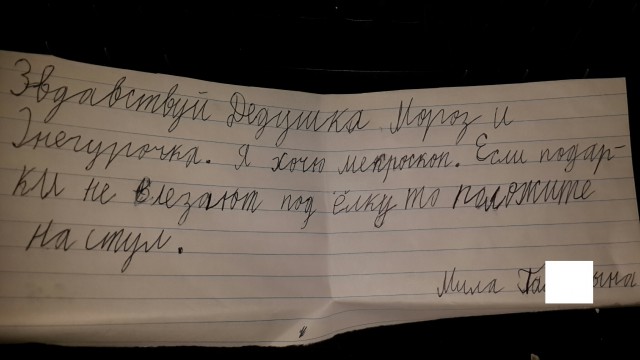 Звдавствуй Дедушка Мороз и
Знегурочка. Я хочю мекроскоп. Если подар-
ки не влезают под ёлку то положите
на стул.
Мила